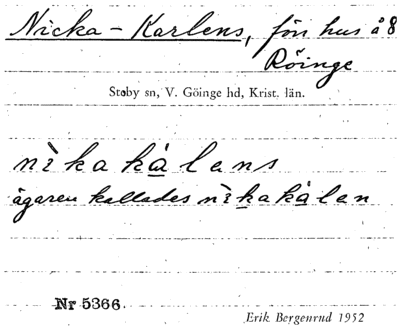 Nicka-Karlens, förr hus å 8
Röinge
Stoby sn, V. Göinge hd, Krist. län.
nìkakàlens
ägaren kallades nìkakàlen
Nr 5366
Erik Bergenrud 1952